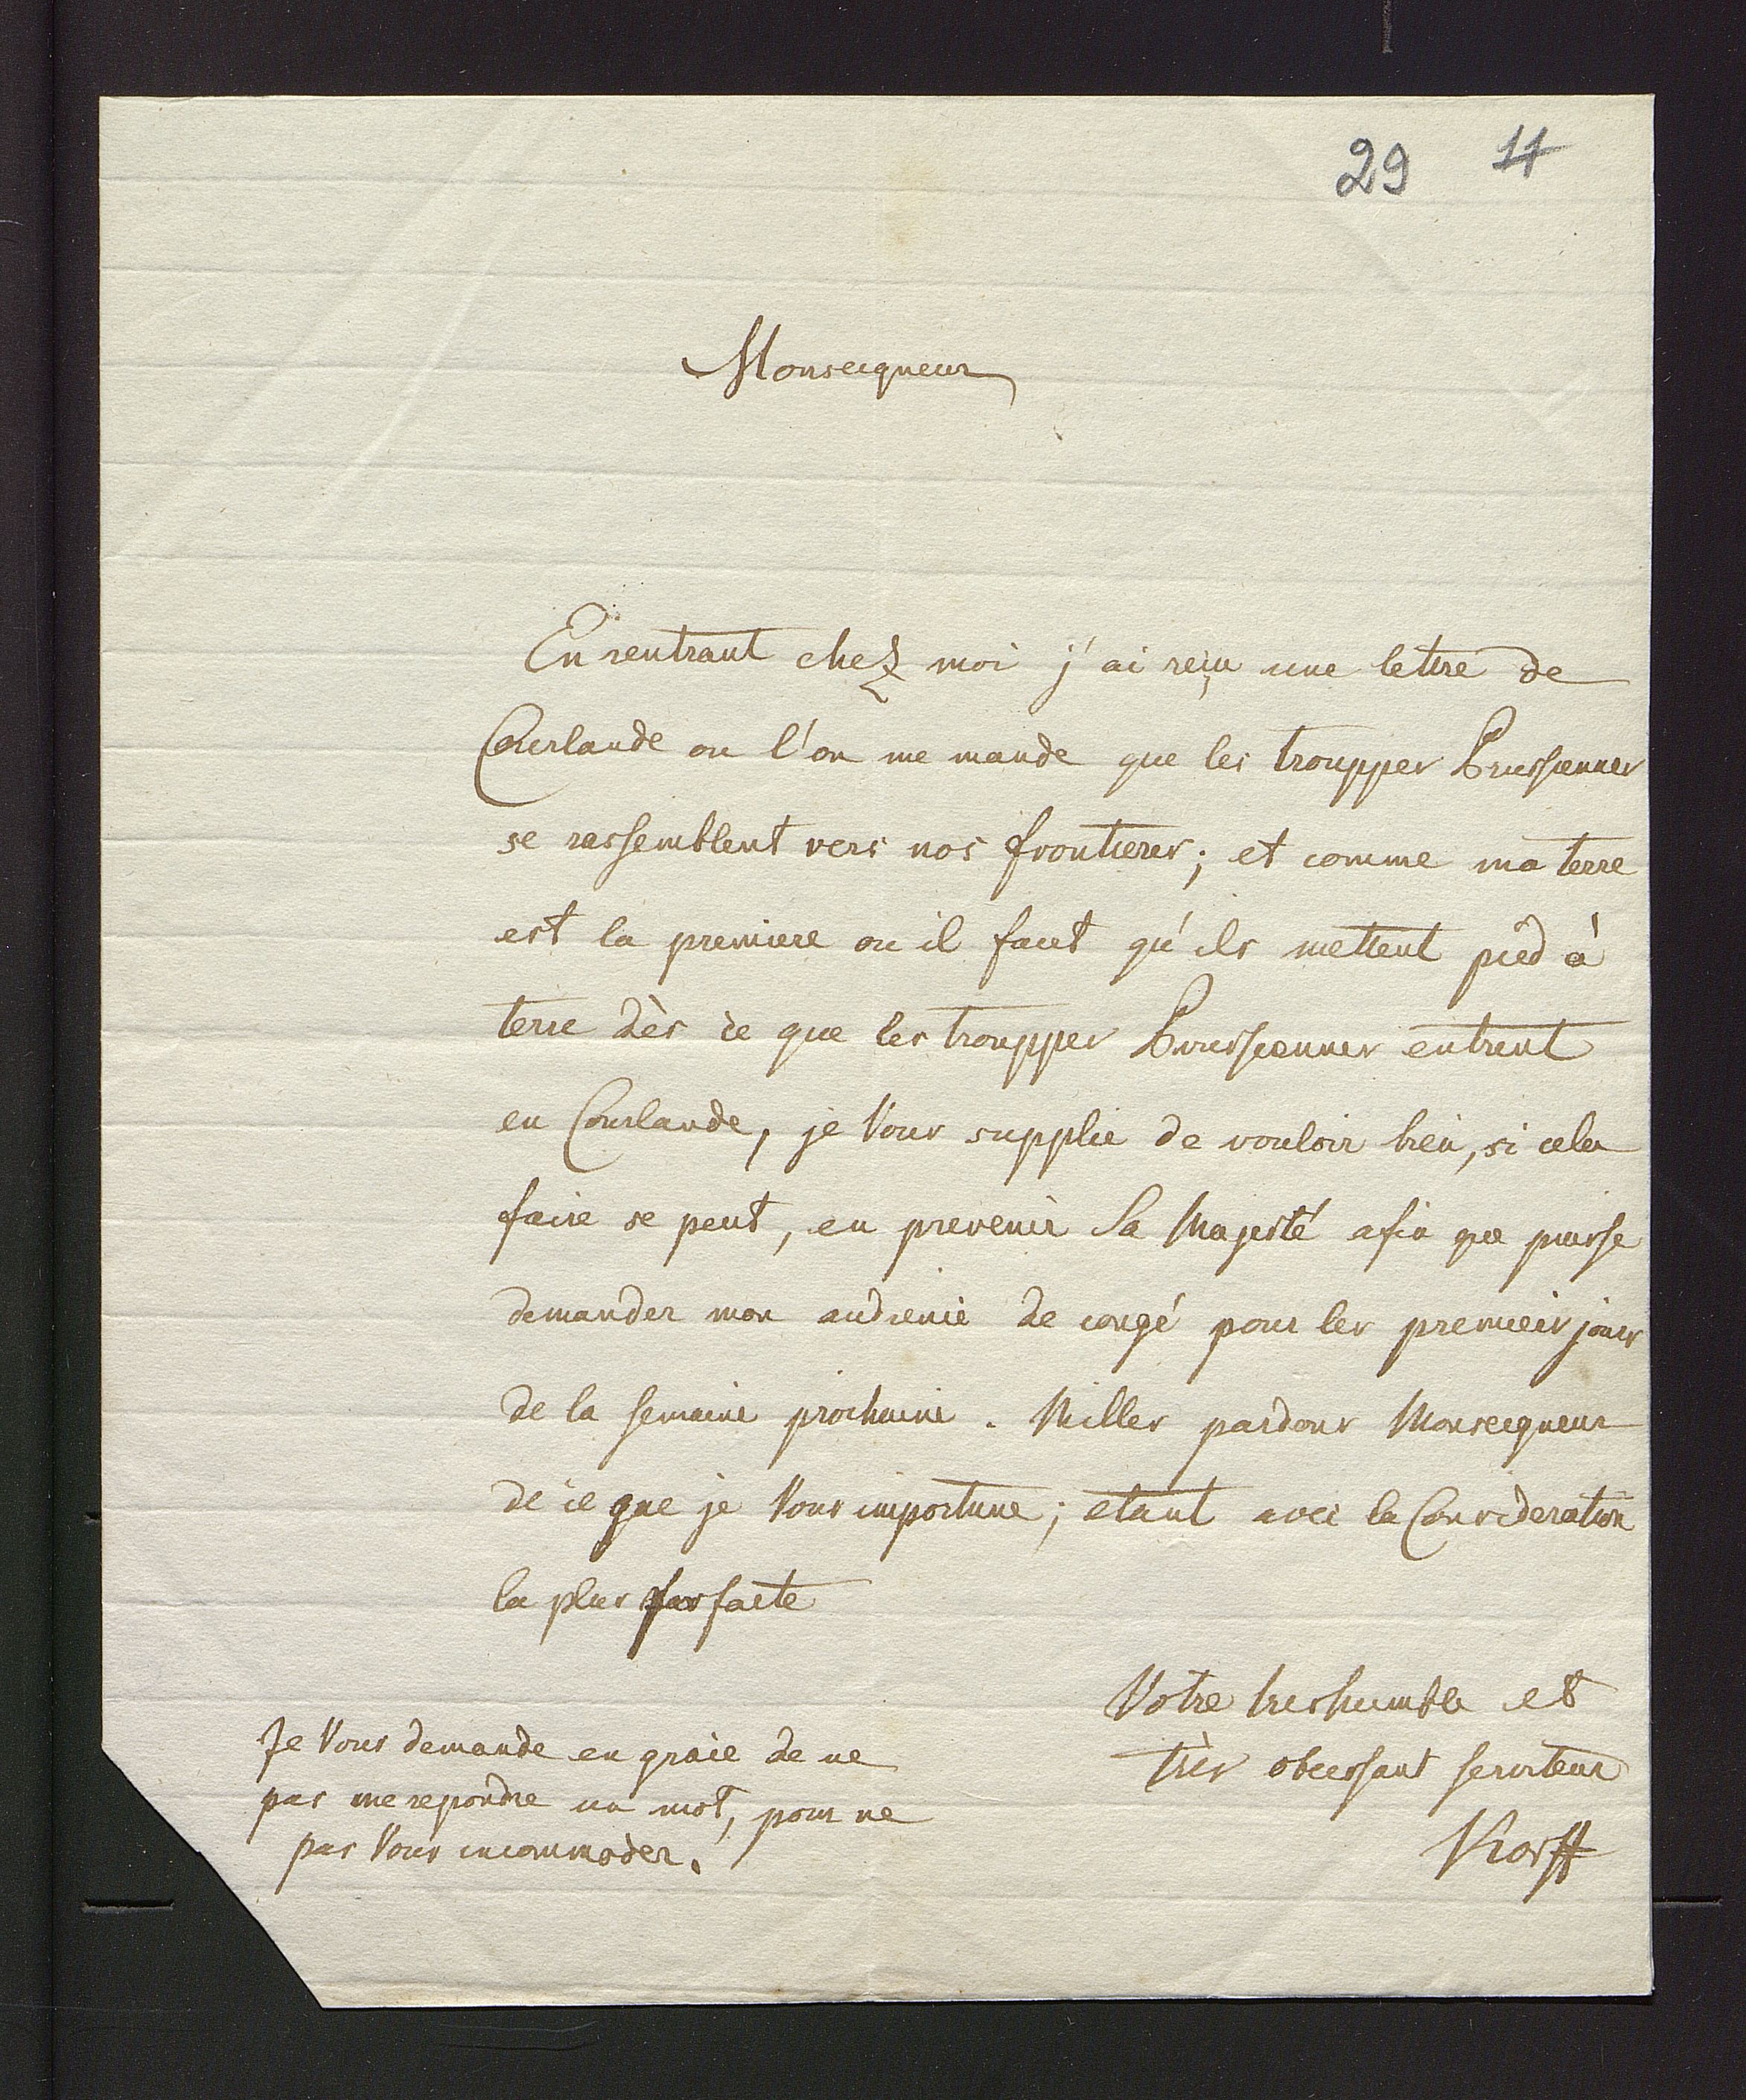 29 11
Monseigneur
En rentrant chez moi j'ai reçu une lettre de
Courlande ou l'on me mande que les trouppes Prussiennes
se rassemblent vers nos frontieres; et comme ma terre
est la premiere ou il faut qu'ils mettent pied à
terre dès ce que les trouppes Prussiennes entrent
en Courlande, je Vous supplie de vouloir bien, si cela
faire se peut, en prevenir Sa Majesté afin que puisse
demander mon audience de congé pour les premieis jours
de la semaine prochaine. Milles pardons Monseigneur
de ce que je Vous importune; etant avec la Consideration
la plus parfaite
Votre treshumble et
très obeissant serviteur
Korff
Je Vous demande en grace de ne
pas me repondre un mot, pour ne
pas Vous incommoder.